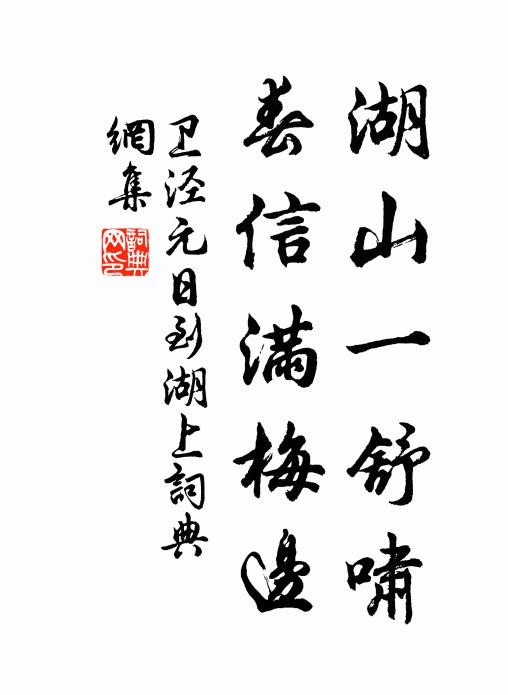 湖山一舒嘯
春信滿梅邊
卫泾元日到湖上詞典
網集
詞典
网印